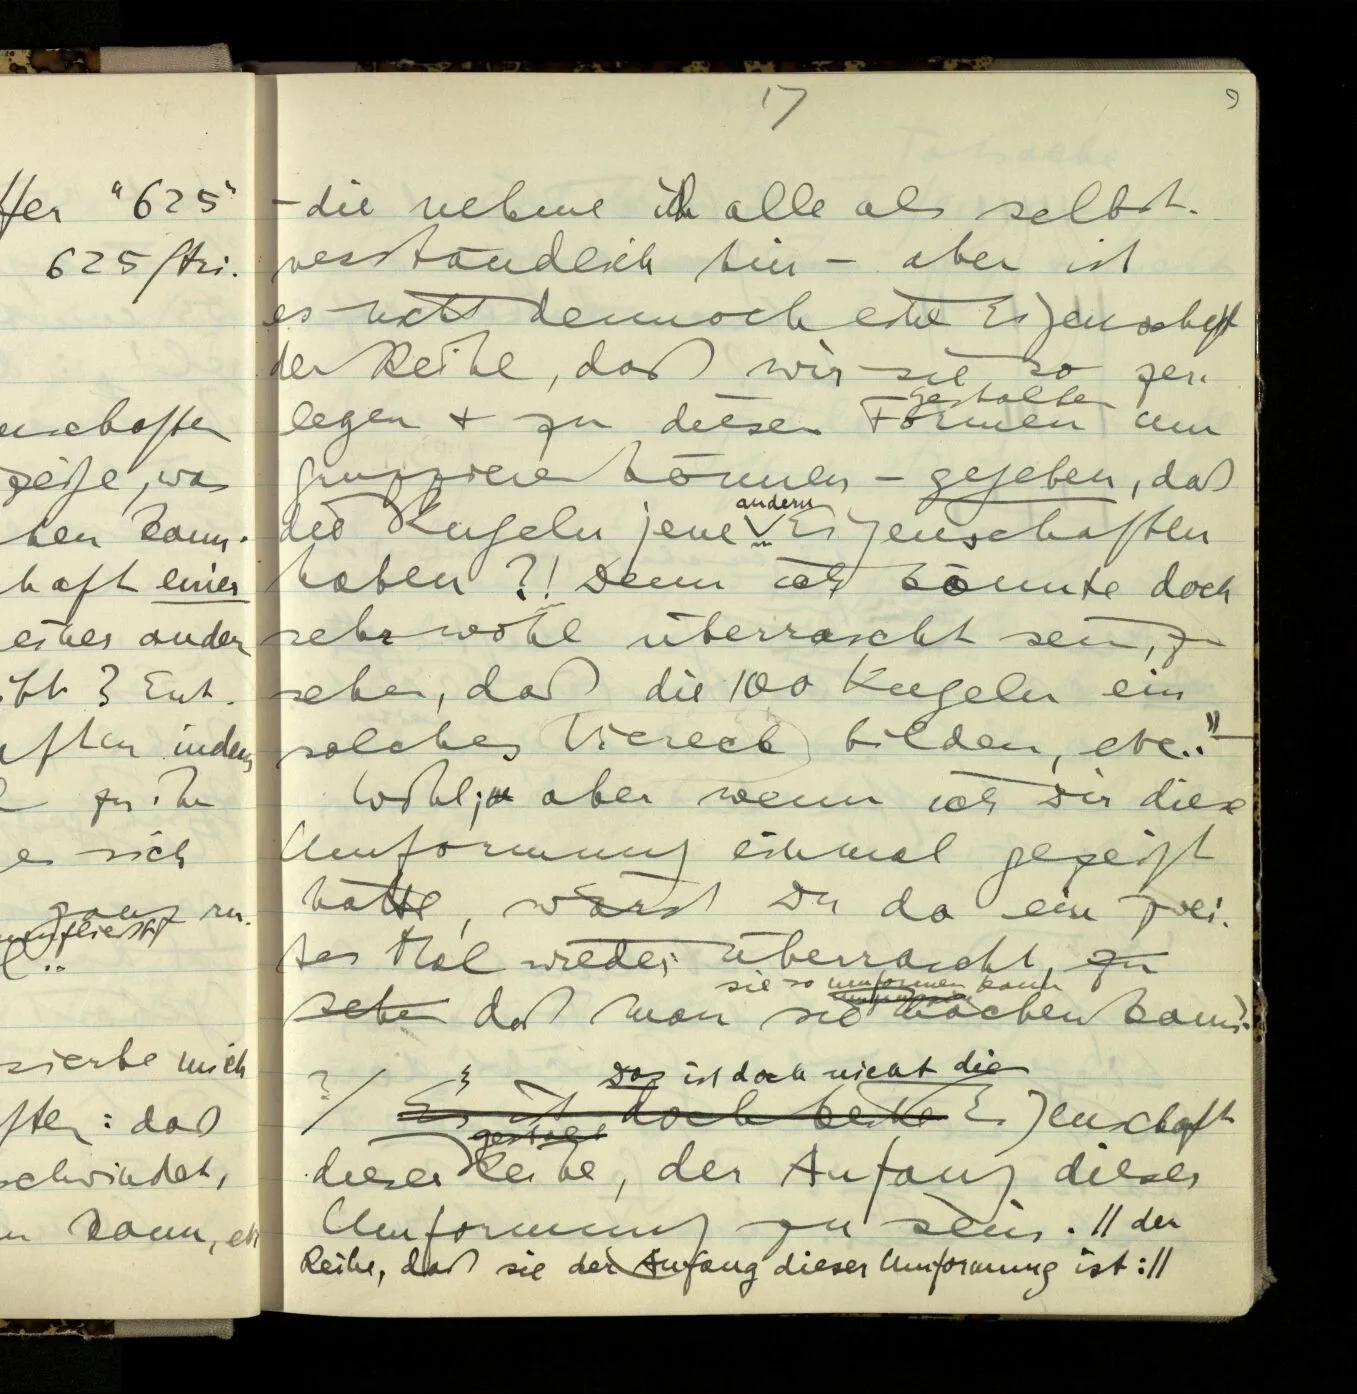 17
9
ffer "625"
625 /tri.
enschaften
zeige, was
ben kann.
haft einer
eines ander
ibt? Ent.
aften indem
zu ihr
es sich
ganz ru.
sierte mich
ften: daß
schwindet,
n kann, etc
– die nehme ich alle als selbst-
verständlich hin – aber ist
es nicht dennoch eine Eigenschaft
der Reihe, daß wir sie so zer-
gestalten
legen + zu diesen Formen um
gruppieren können – gegeben, daß
andern
die Kugeln jene Eigenschaften
haben?! Denn ich könnte doch
sehr wohl überrascht sein, zu
sehen, daß die 100 Kugeln ein
solches Viereck bilden, etc.."–
Wohl; aber wenn ich Dir diese
Umformung einmal gezeigt
hätte, wärst Du da ein zwei-
tes Mal wieder überrascht, zu
sie so umformen kann
sehen daß man sie machen kann?
Das ist doch nicht die
?/ Es ist doch keine Eigenschaft
gestalt
dieser Reihe, der Anfang dieser
Umformung zu sein. // der
Reihe, daß sie der Anfang dieser Umformung ist: //